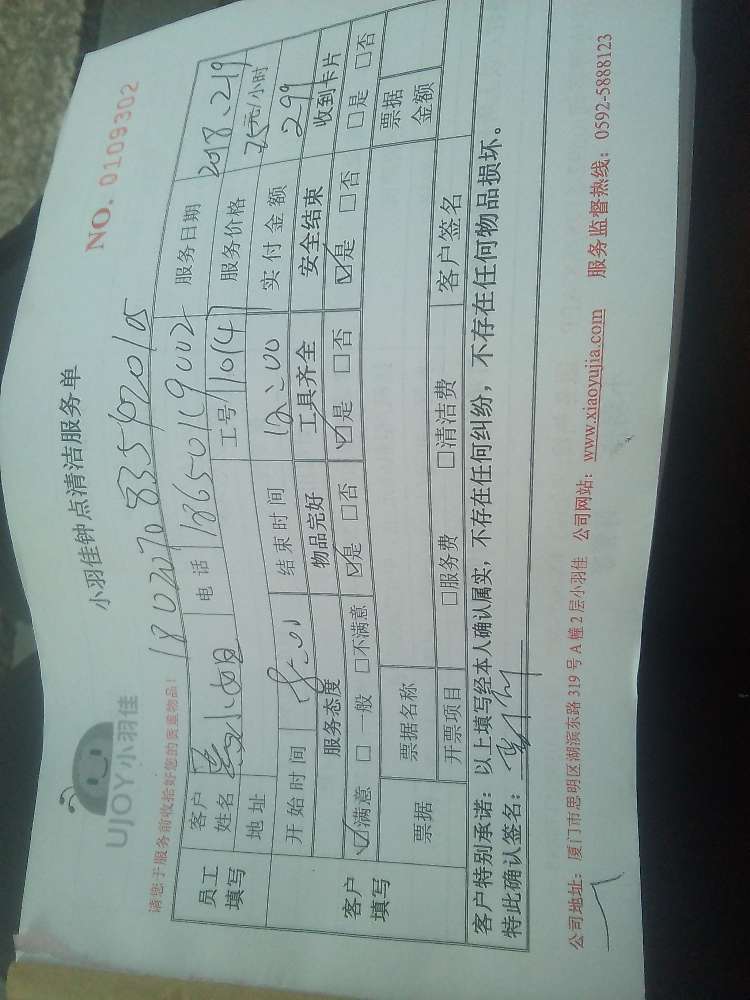 UJOY小羽佳
小羽佳钟点清洁服务单
NO. 0109302
请您于服务前收拾好您的贵重物品!
员工填写
客户姓名 小姐 电话 18650119002 服务日期 2018.2.19
地址 工号 11014 服务价格 25元/小时
开始时间 结束时间 12:00 实付金额 299
客户填写
服务态度 物品完好 工具齐全 安全结束 收到卡片
☑满意 □一般 □不满意 ☑是 □否 ☑是 □否 ☑是 □否 □是 □否
票据 票据名称 票据金额
开票项目 □服务费 □清洁费 客户签名
客户特别承诺:以上填写经本人确认属实,不存在任何纠纷,不存在任何物品损坏。
特此确认签名:
公司地址:厦门市思明区湖滨东路319号A幢2层小羽佳 公司网站:www.xiaoyujia.com 服务监督热线:0592-5888123